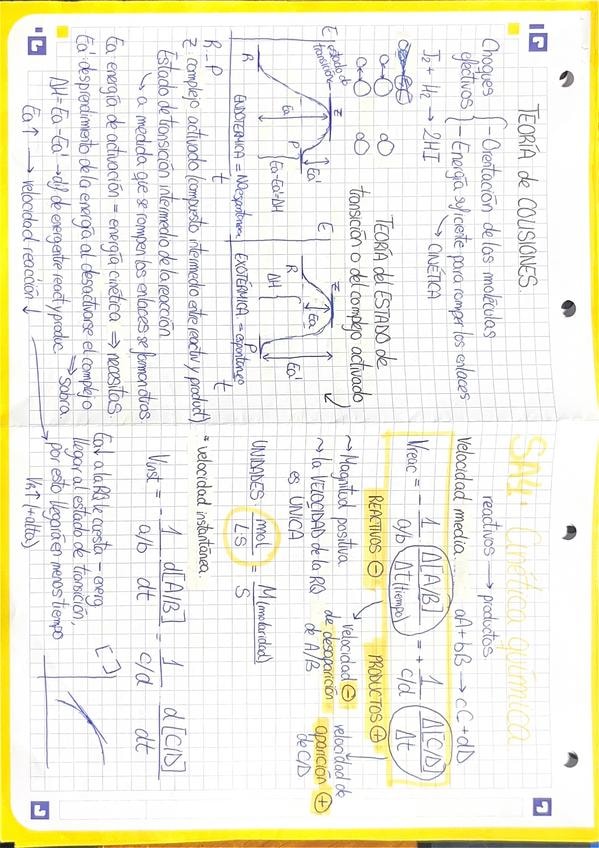 SA4: Cinética química
reactivos → productos.
Velocidad media... aA + bB → cC + dD
Vreac = - 1/a/b Δ[A/B]/Δt(tiempo) = + 1/c/d Δ[C/D]/Δt
REACTIVOS ⊖ PRODUCTOS ⊕
~ Magnitud positiva
~ la VELOCIDAD de la RQ
es ÚNICA
velocidad ⊖
de desaparición
de A/B
velocidad de
aparición ⊕
de C/D
UNIDADES mol/L·S = M(molaridad)/S
= velocidad instantánea.
Vinst = - 1/a/b d[A/B]/dt = 1/c/d d[C/D]/dt
Ea↓ a la RQ le cuesta - energ
llegar al estado de transición,
por esto, llegará en menos tiempo
V↑ (+ alta)
[ ]
TEORÍA de COLISIONES.
Choques
efectivos
- Orientación de las moléculas
- Energía suficiente para romper los enlaces
→ CINÉTICA
I2 + H2 → 2HI
TEORÍA del ESTADO de
transición o del complejo activado
E
estado de
transición
Z
R
Ea
P
Ea'
Ea-Ea'=ΔH
t
ENDOTÉRMICA = No espontánea
E
Z
R
Ea
ΔH
Ea'
P
t
EXOTÉRMICA = espontáneo
R_P
Z complejo activado (compuesto intermedio entre reactiv y product)
Estado de transición intermedio de la reacción
↳ a medida que se rompen los enlaces se forman otros
Ea energía de activación = energía cinética ⇒ necesitas
Ea' desprendimiento de la energía al desactivarse el complejo
⇒ sobra.
ΔH = Ea - Ea' → dif de energ entre react y produc.
Ea↑ → velocidad reacción ↓